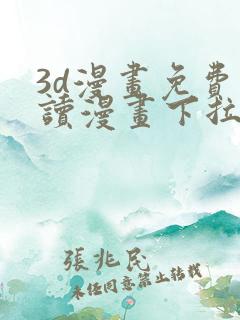 3d漫畫免費
讀漫畫下拉
張兆民
未经同意禁止转载